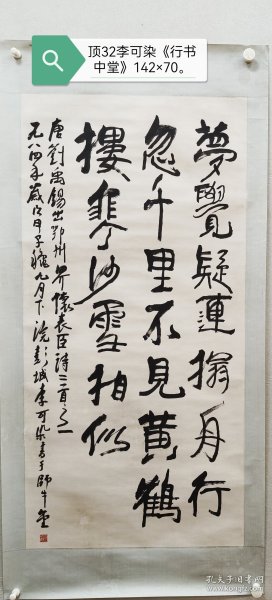 顶32李可染《行书
中堂》142×70。
夢覺疑連榻舟行
忽千里不見黃鶴
樓寒沙雪相似
唐劉禹錫出鄂州界懷表臣詩二首之一
一九八四年歲次甲子穐九月下浣彭城李可染書于師牛堂
孔夫子旧书网